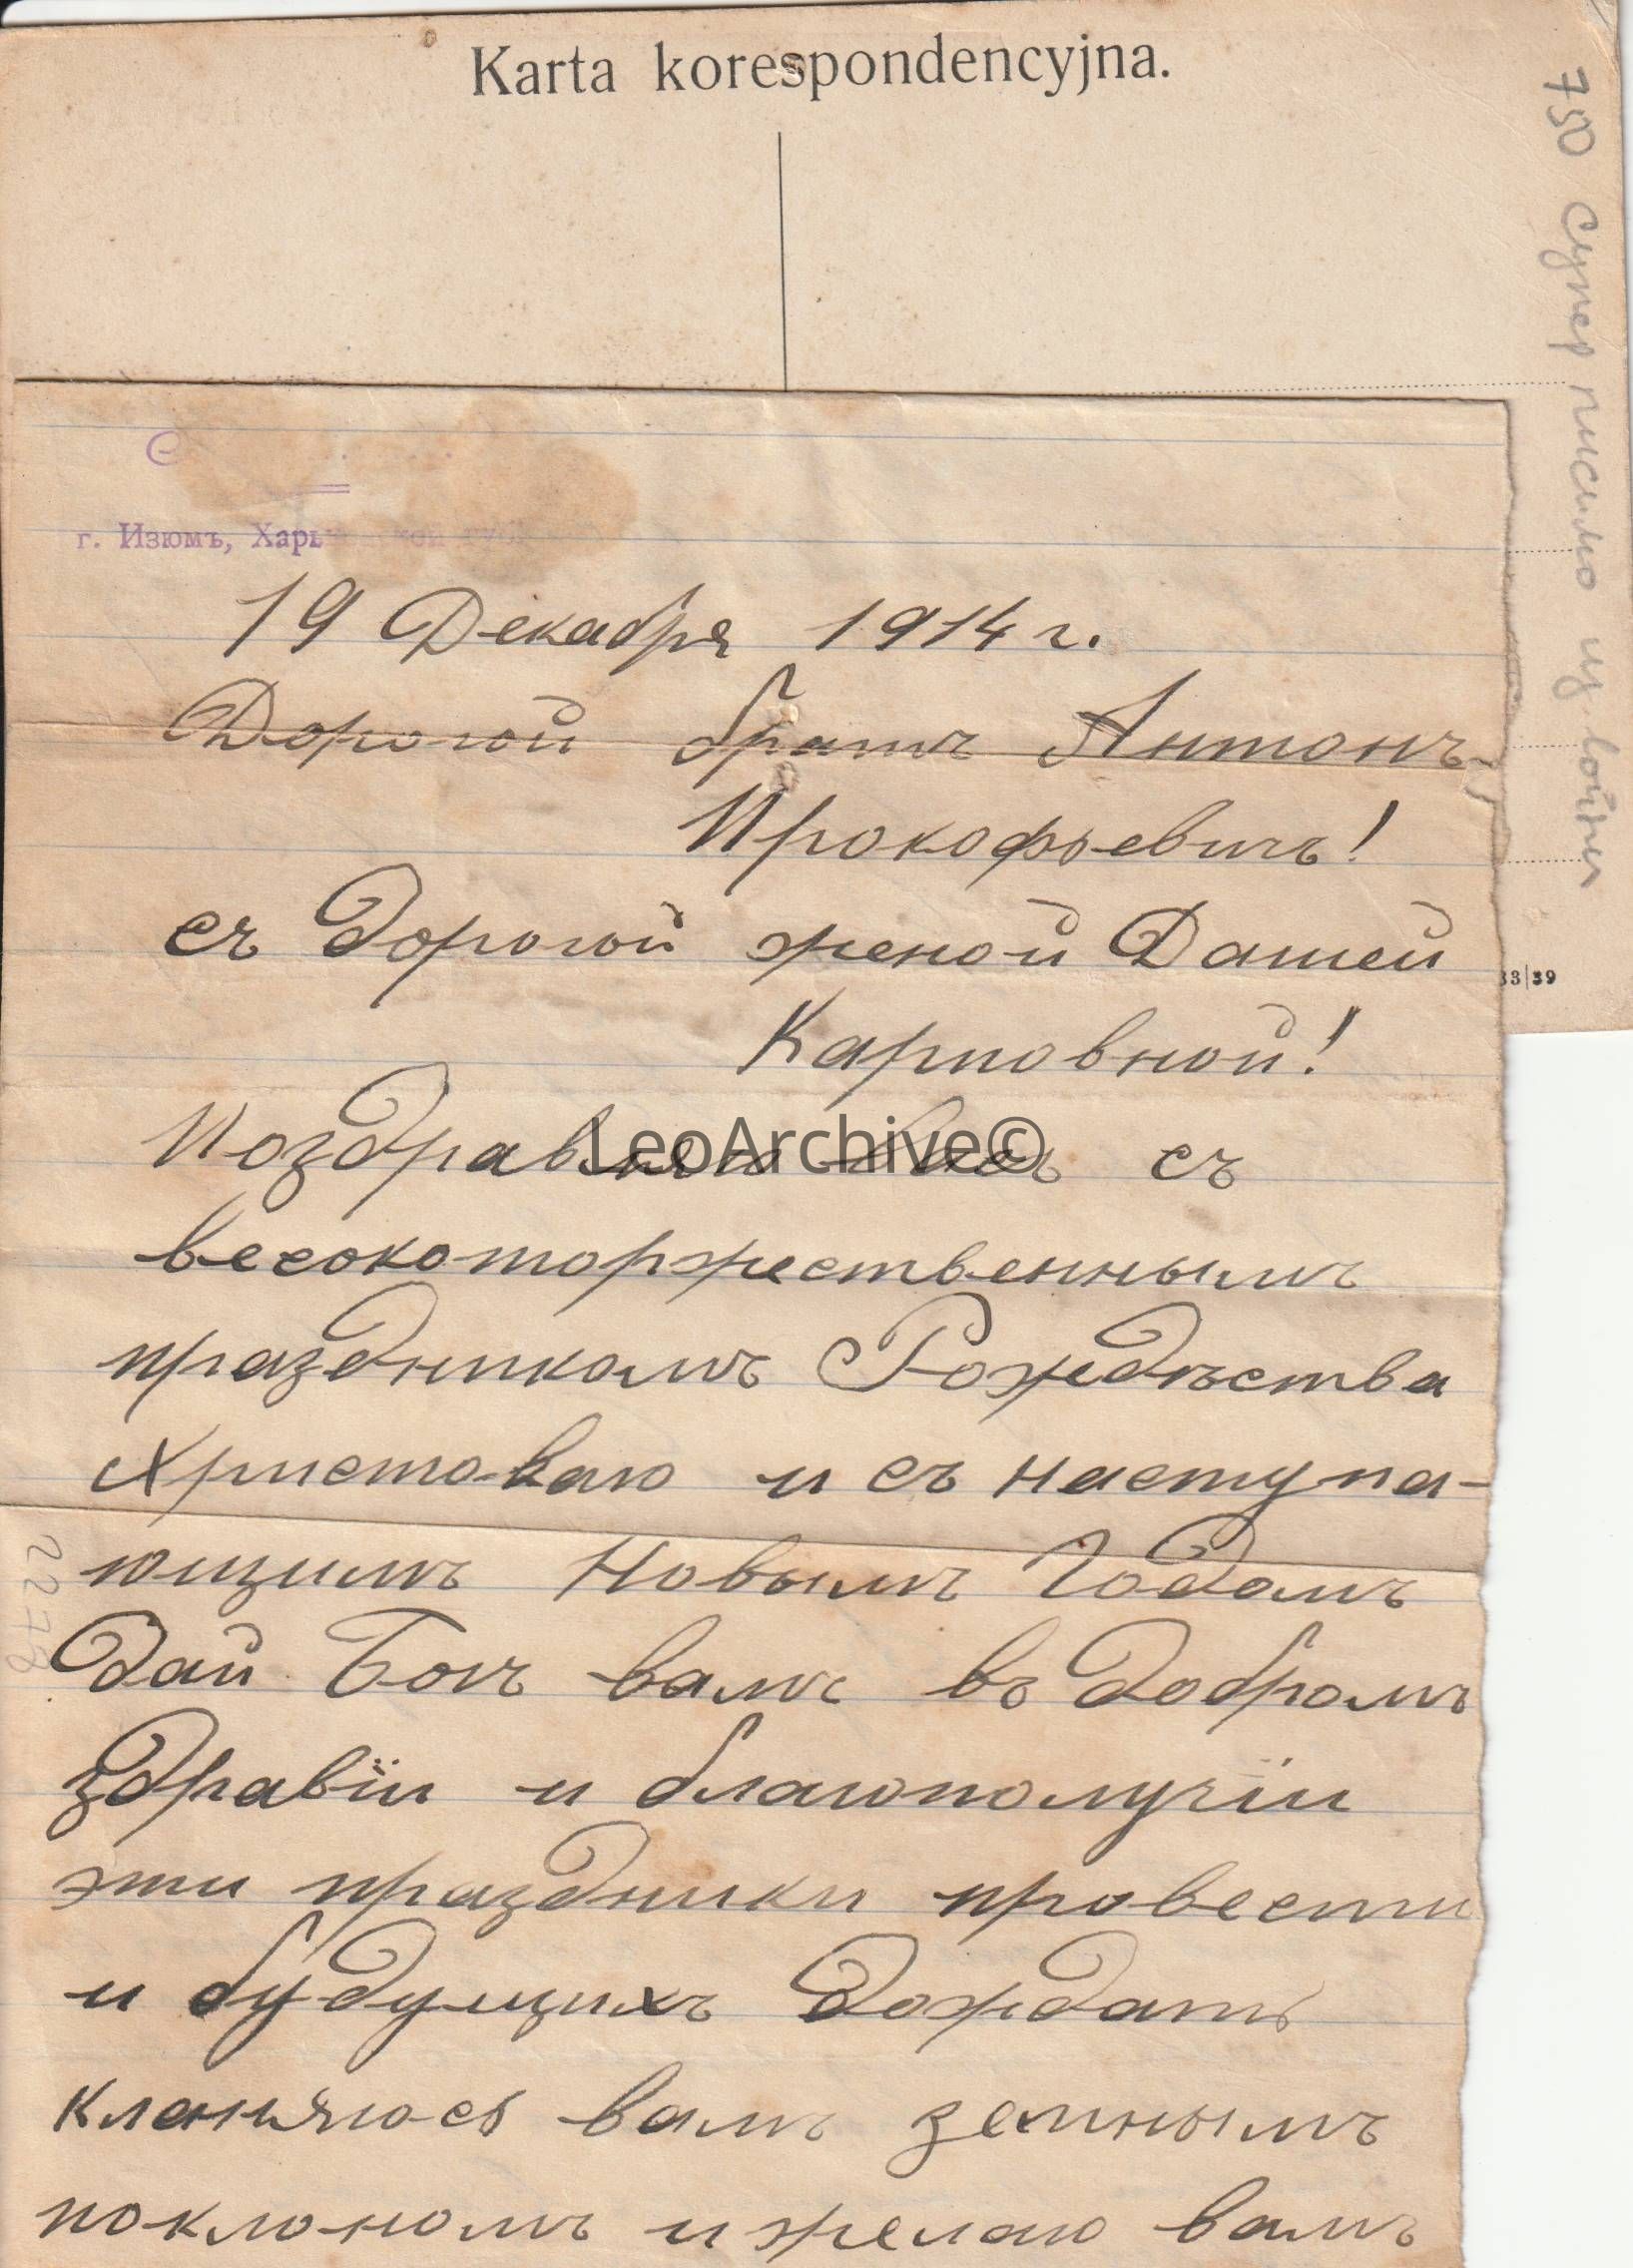 Karta korespondencyjna.
750 Супер письмо из войны
г. Изюмъ, Харьковской губ.
19 Декабря 1914 г.
Дорогой братъ Антонъ
Прокофьевичъ!
съ дорогой женой Дашей
Карповной!
Поздравляю васъ съ
весокоторжественнымъ
праздникомъ Рождъства
Христоваго и съ наступа-
ющимъ Новымъ Годомъ
дай Богъ вамъ въ добромъ
здравіи и благополучіи
эти праздники провести
и будущихъ дождать
кланяюсь вамъ земнымъ
поклономъ и желаю вамъ
33|39
2278
LeoArchive©